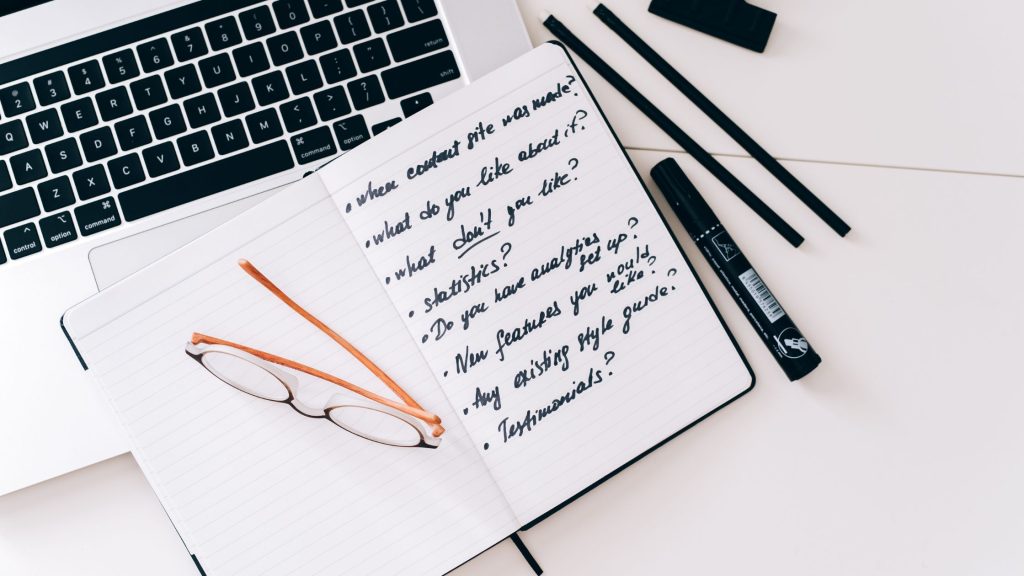 @ # $ % ^ & * ( )
2 3 4 5 6 7 8 9 0
Q W E R T Y U I O P
A S D F G H J K L return
Z X C V B N M < > ? shift
control option command command option
• when site was made?
• what do you like about it?
• what don't you like?
• statistics?
• Do you have analytics
set up?
• New features you would
like?
• Any existing style guide?
• Testimonials?